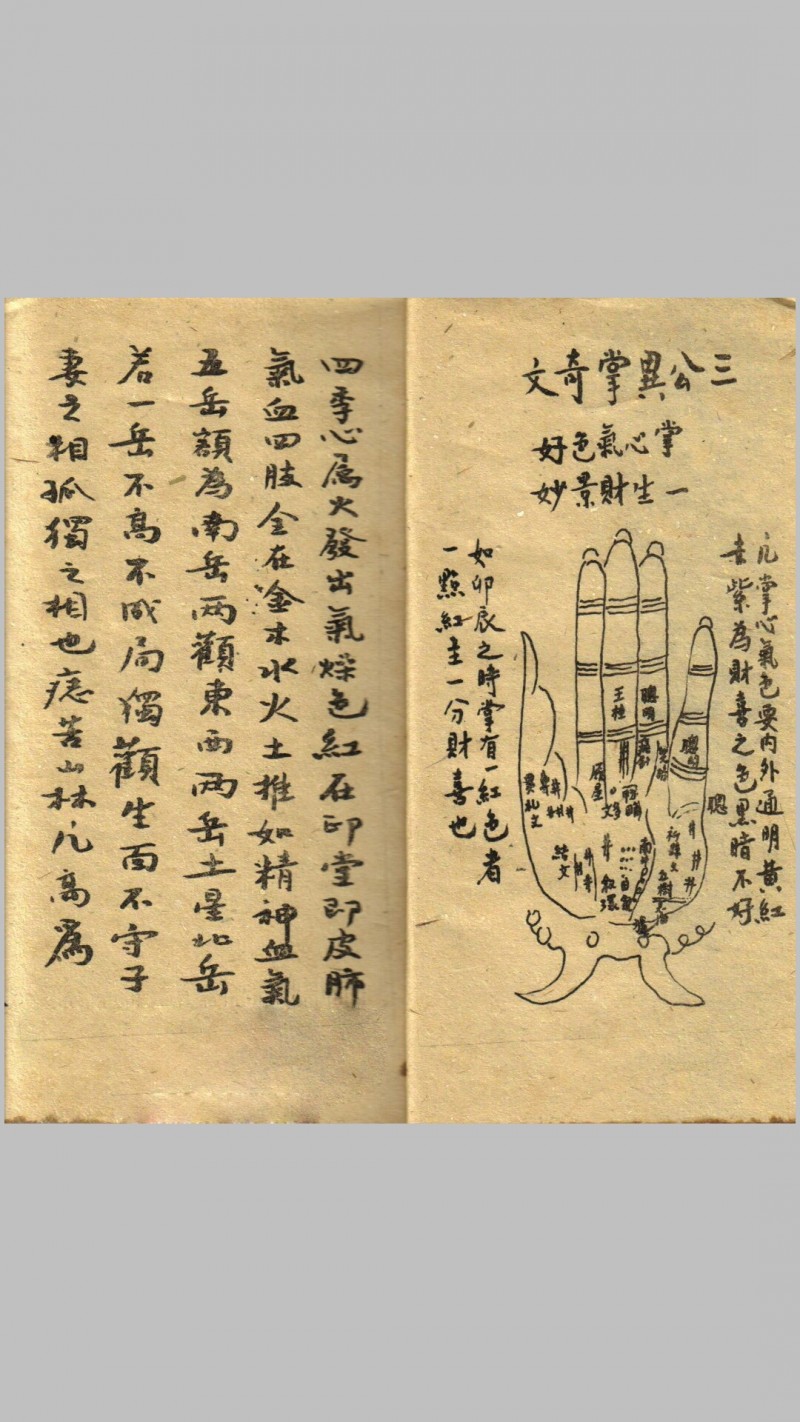 三公異掌奇文
掌心氣色好
一生財景妙
凡掌心氣色要内外通明黄紅
去紫為財喜之色黑暗不好
如卯辰之時掌有一紅色者
一點紅主一分財喜也
聰明
聰明
玉柱
聰
文
結文
井
紅環
四季心属火發出氣燥色紅在印堂即皮肺
氣血四肢全在金木水火土推如精神血氣
五岳額為南岳两顴東西两岳土星北岳
若一岳不高不成局獨顴生面不守子
妻之相孤獨之相也痣苦山林凡高為